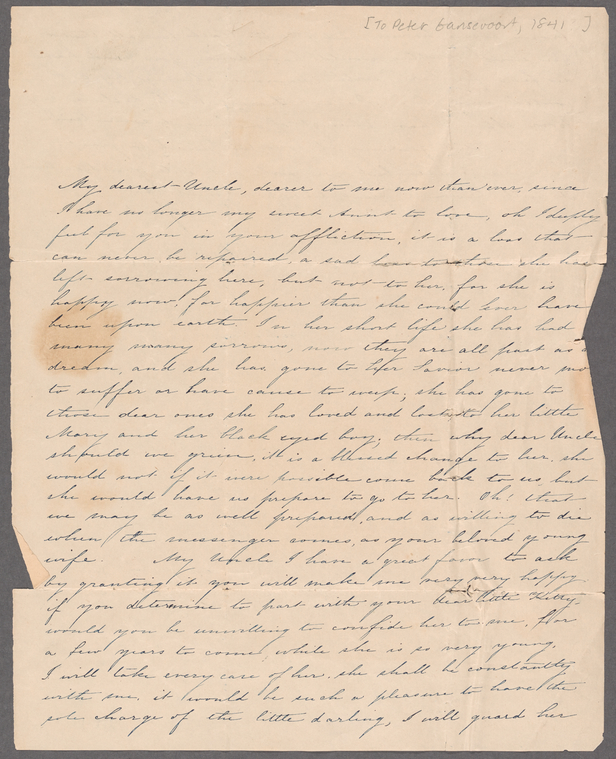 [To Peter Gansevoort, 1841 ]
My dearest Uncle, dearer to me now than ever, since
I have no longer my sweet Aunt to love, oh I deeply
feel for you in your affliction, it is a loss that
can never be repaired, a sad loss to those she has
left sorrowing here, but not to her, for she is
happy now, far happier than she could ever have
been upon earth. In her short life she has had
many many sorrows, now they are all past as a
dream, and she has gone to her Savior never mo
to suffer or have cause to weep, she has gone to
those dear ones she has loved and lost, to her little
Mary and her black eyed boy; then why dear Uncle
should we grieve, it is a blessed change to her. she
would not if it were possible come back to us, but
she would have us prepare to go to her. Oh! that
we may be as well prepared, and as willing to die
when the messenger comes, as your beloved young
wife. My Uncle I have a great favor to ask
by granting it you will make me very very happy.
if you determine to part with your dear little Kitty.
would you be unwilling to confide her to me, for
a few years to come while she is so very young,
I will take every care of her. she shall be constantly
with me, it would be such a pleasure to have the
sole charge of the little darling, I will guard her